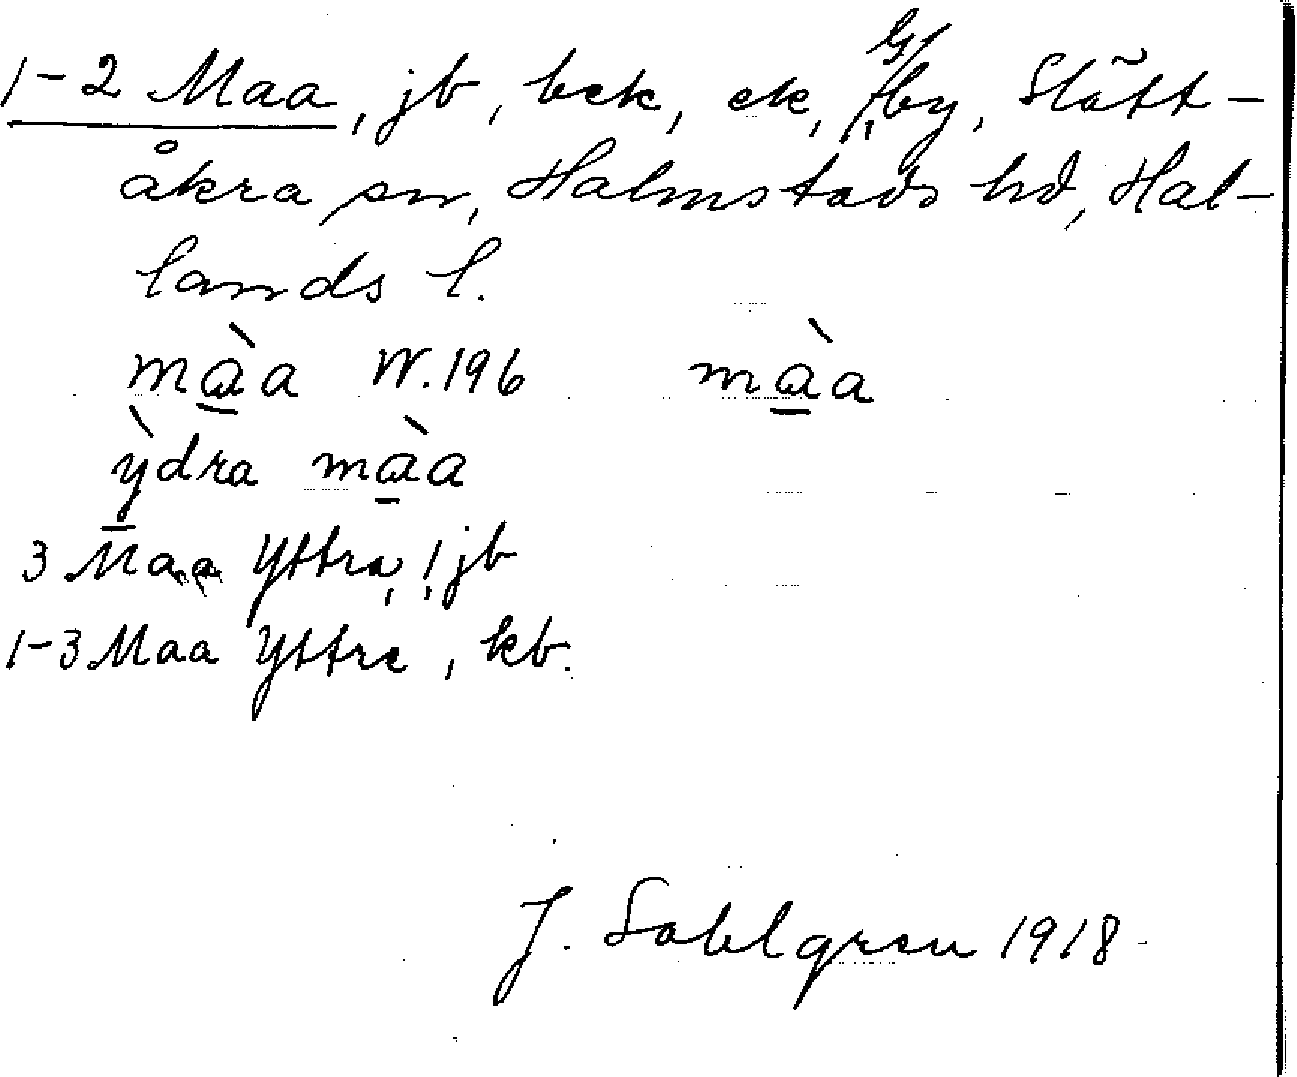 1-2 Maa, jb, bek, ek, by, Slätt-
åkra sn, Halmstads hd, Hal-
lands l.
màa W.196 màa
ỳdra màa
3 Maa Yttra, jb
1-3 Maa Yttre, kb.
J. Sahlgren 1918